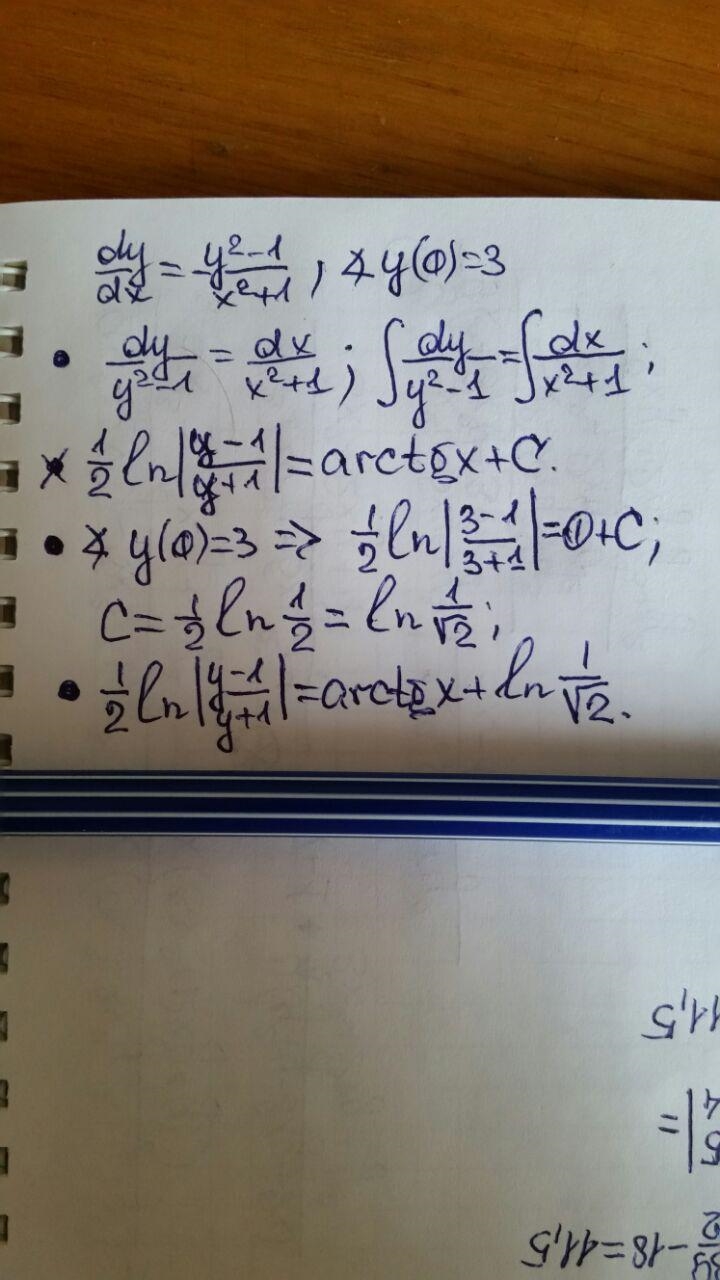 dy/dx = y²-1/x²+1, ∡ y(0)=3
• dy/y²-1 = dx/x²+1; ∫ dy/y²-1 = ∫ dx/x²+1;
× 1/2 ln|y-1/y+1| = arctgx+C.
• ∡ y(0)=3 => 1/2 ln|3-1/3+1| = 0+C;
C = 1/2 ln 1/2 = ln 1/√2;
• 1/2 ln|y-1/y+1| = arctgx + ln 1/√2.
11,5
-18=11,5